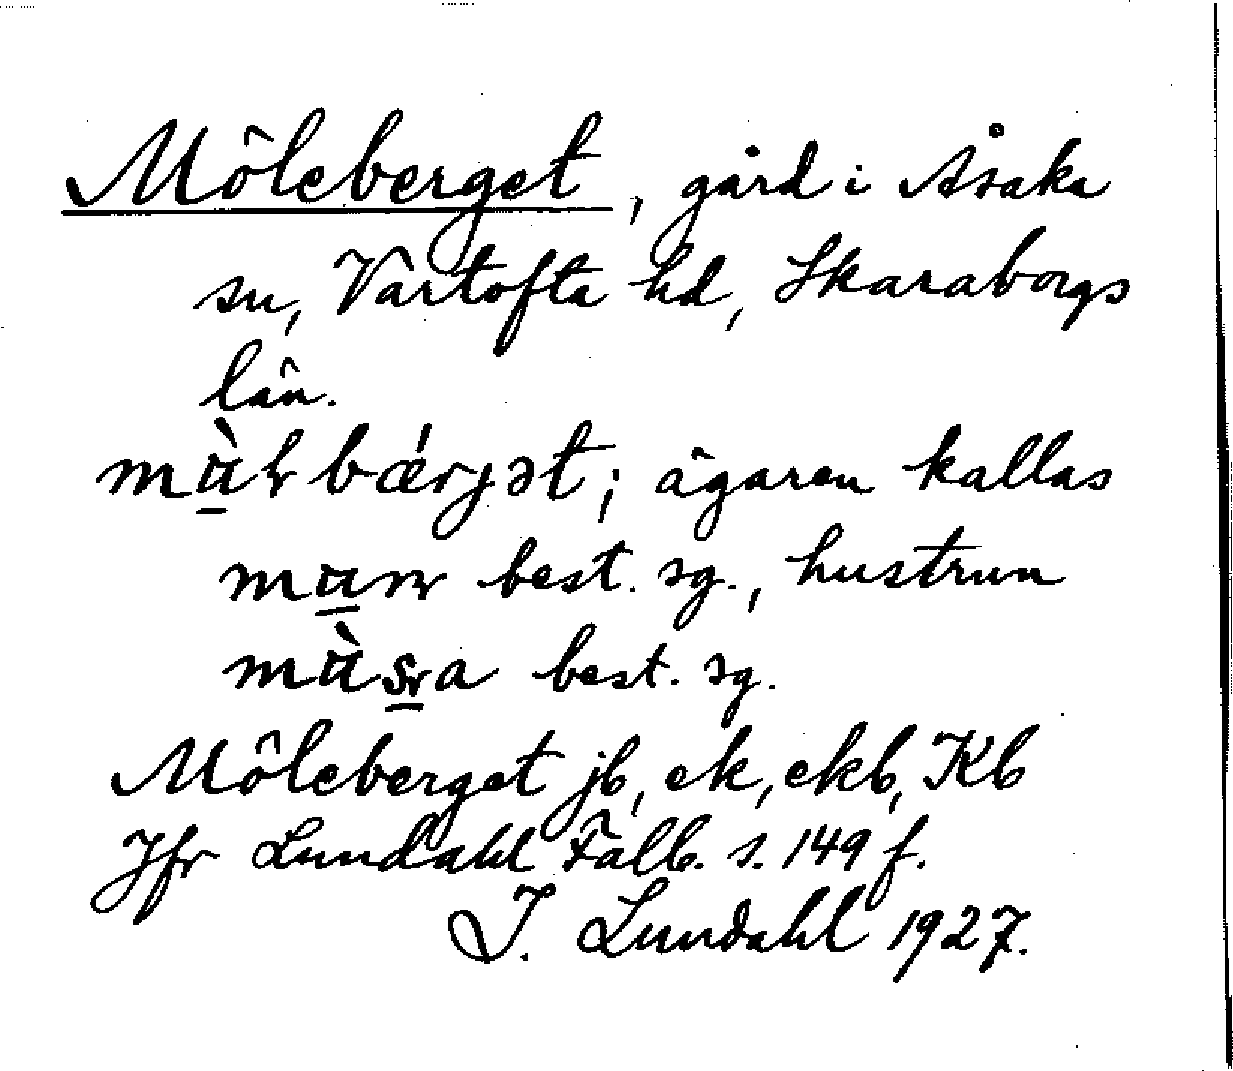 Möleberget, gård i Åsaka
sn, Vartofta hd, Skaraborgs
län.
ägaren kallas
best. sg., hustrun
best. sg.
Möleberget jb, ek, ekb, Kb
Jfr Lundahl Falb. s. 149 f.
I. Lundahl 1927.